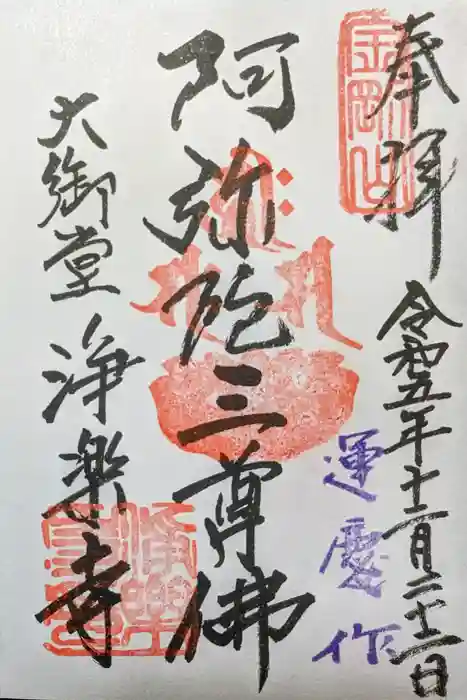 奉拝
金剛山
令和五年十二月二十二日
運慶作
阿弥陀三尊佛
大御堂
浄楽寺